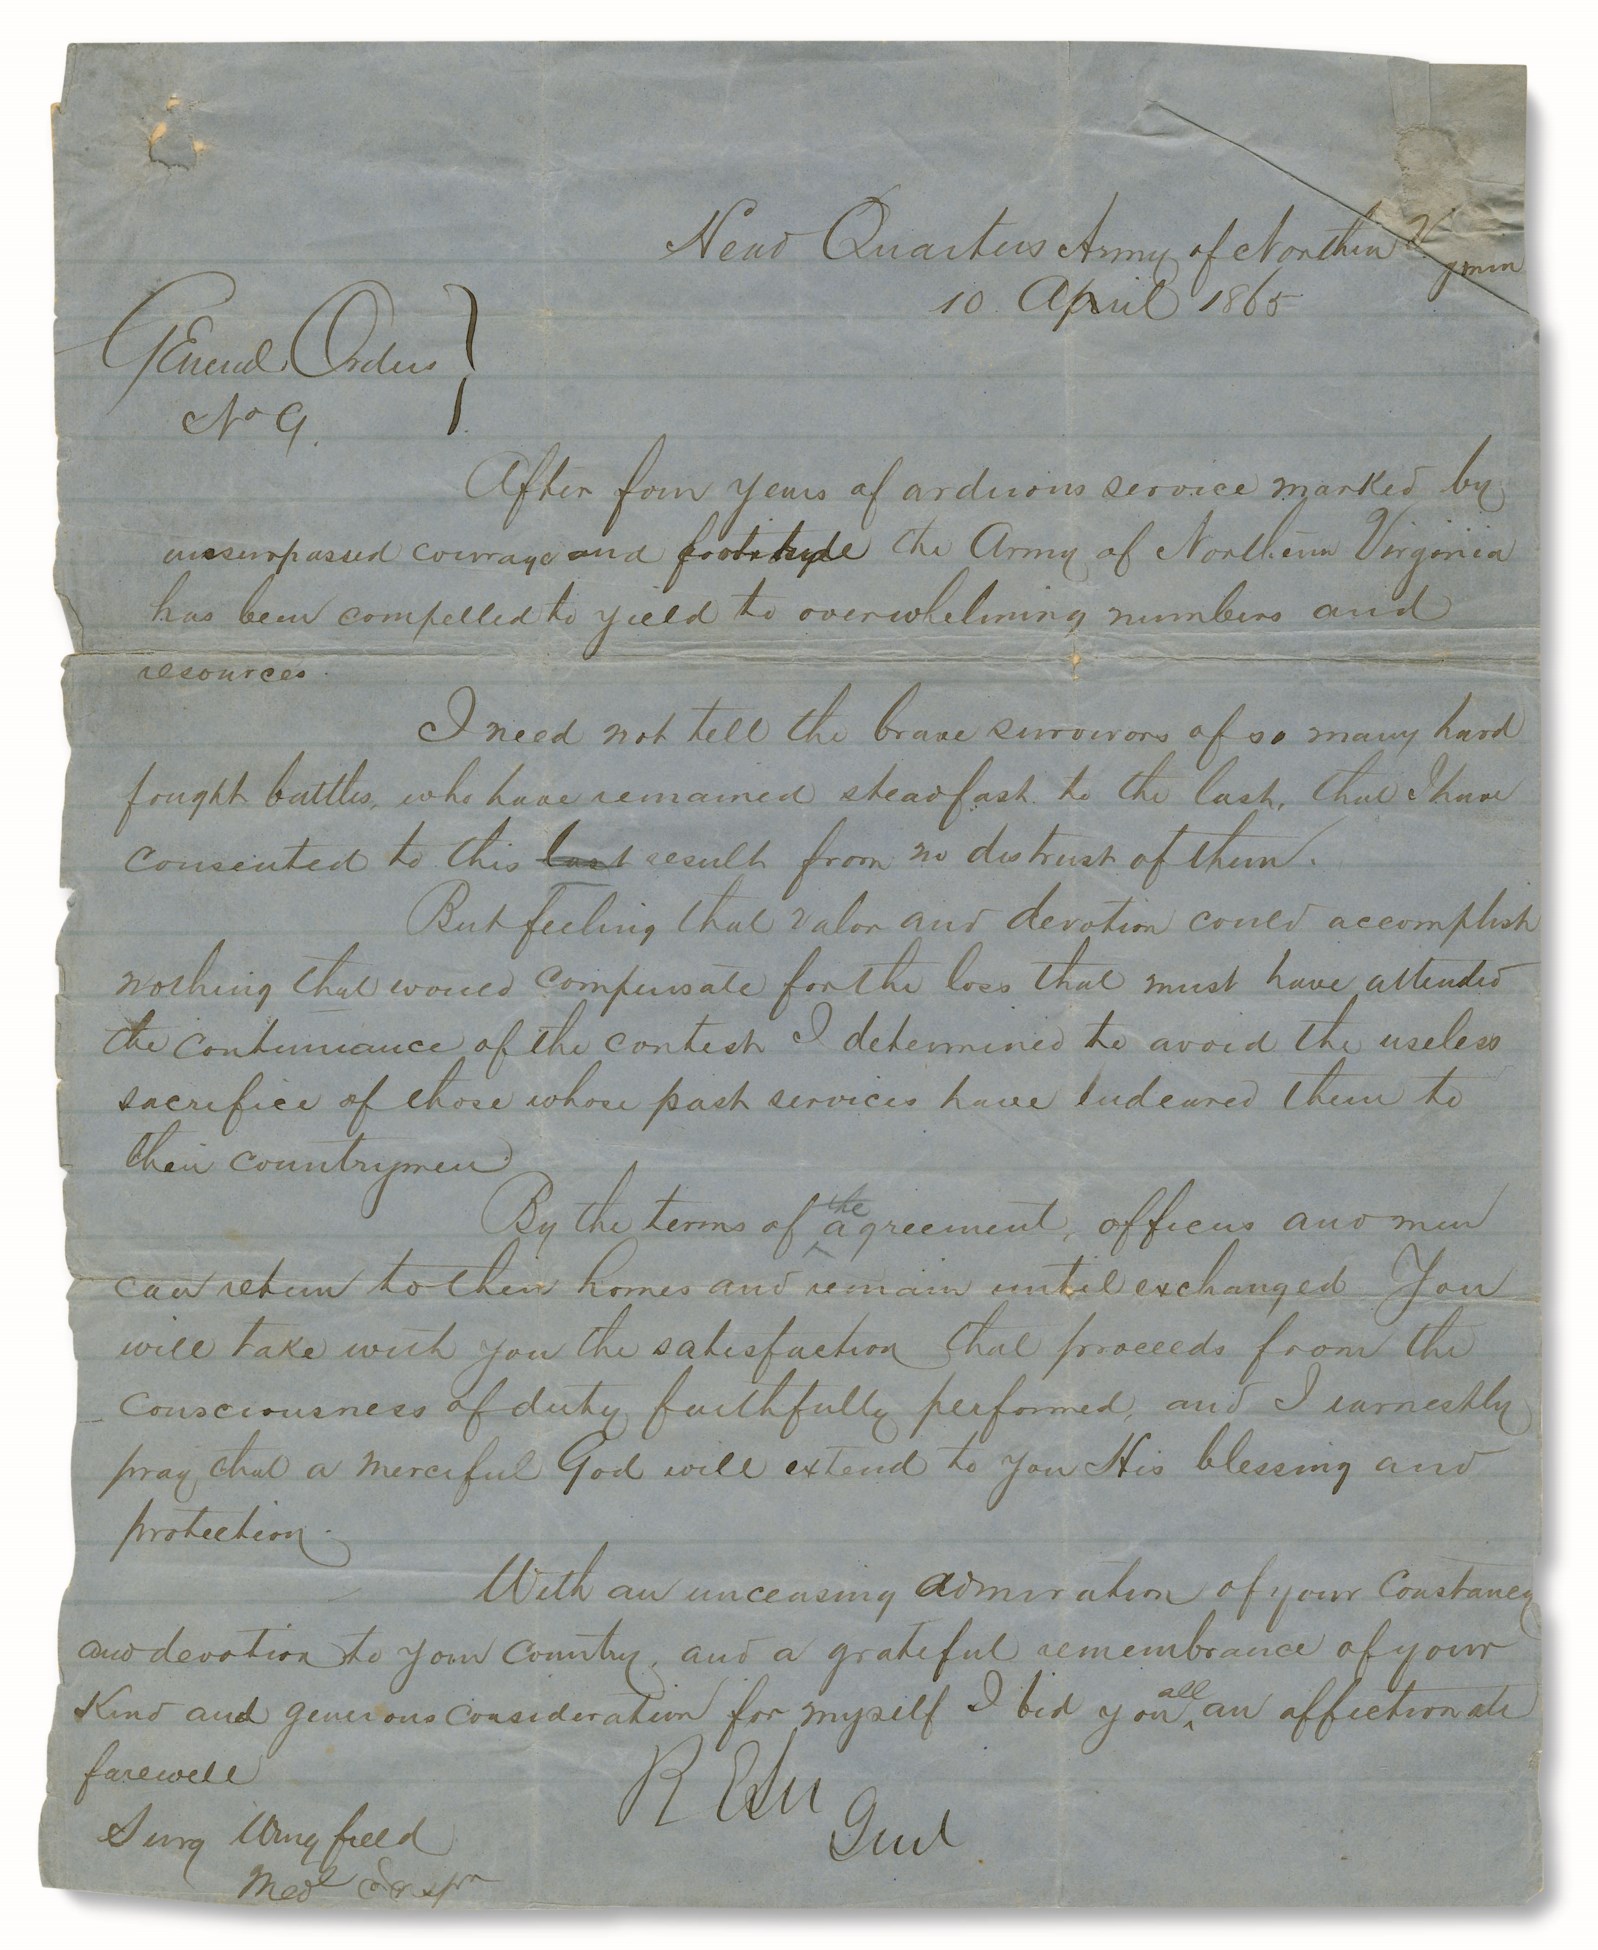 Head Quarters Army of Northern V
10 April 1865
General Orders
No 9.
After four years of arduous service marked by
unsurpassed courage and fortitude the Army of Northern Virginia
has been compelled to yield to overwhelming numbers and
resources.
I need not tell the brave survivors of so many hard
fought battles, who have remained steadfast to the last, that I have
consented to this last result from no distrust of them.
But feeling that valor and devotion could accomplish
nothing that would compensate for the loss that must have attended
the continuance of the contest I determined to avoid the useless
sacrifice of those whose past services have endeared them to
their countrymen.
By the terms of the agreement, officers and men
can return to their homes and remain until exchanged You
will take with you the satisfaction that proceeds from the
consciousness of duty faithfully performed, and I earnestly
pray that a merciful God will extend to you His blessing and
protection.
With an unceasing admiration of your constancy
and devotion to your country, and a grateful remembrance of your
kind and generous consideration for myself I bid you all an affectionate
farewell
R E Lee
Genl
Surg Wingfield
Medl